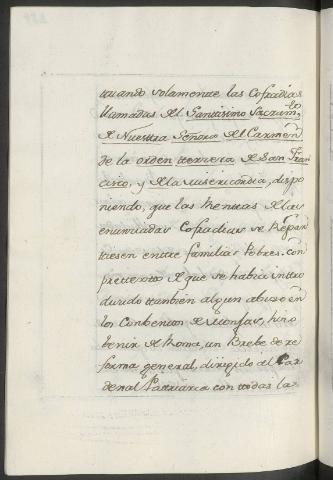 tuando solamente las Cofradias
llamadas del Santisimo Sacram.to
de Nuestra Señora del Carmen
de la orden tercera de San Fran
cisco, y de la Misericordia, dispo
niendo, que las Rentas de las
enunciadas Cofradias se Repar
tiesen entre familias Pobres. con
pretexto de que se habia intro
ducido tambien algun abuso en
los Conbentos de Monjas, hizo
benir de Roma, un Brebe de re
forma general, dirigido al Car
denal Patriarca con todas las